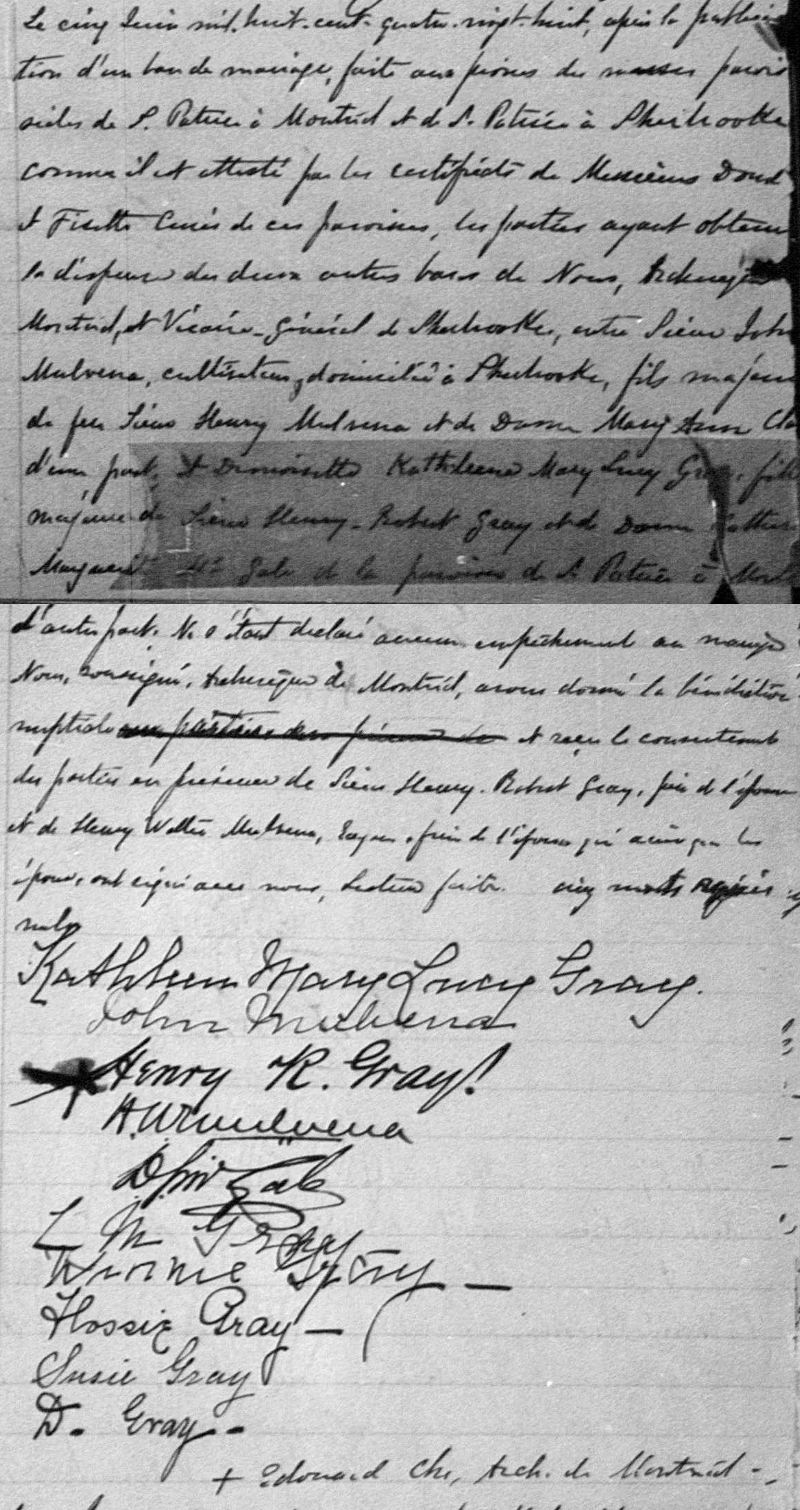 Le cinq Juin mil-huit-cent-quatre-vingt-huit, après la publica
tion d'un ban de mariage, faite aux prônes des messes parois
siales de S. Patrice à Montréal et de S. Patrice à Sherbrooke
comme il est attesté par les certificats de Messieurs Dowd
et Fisette Curés de ces paroisses, les parties ayant obtenu
la dispense des deux autres bans de Nous, Archevêque
Montréal, et Vicaire-Général de Sherbrooke, entre Sieur John
Mulvena, cultivateur, domicilié à Sherbrooke, fils majeur
de feu Sieur Henry Mulvena et de Dame Mary Ann
d'une part, et Demoiselle Kathleene Mary Lucy Gray, fille
majeure de Sieur Henry-Robert Gray et de Dame
Margaret Mc Gale et de la paroisse de S. Patrice à
d'autre part. Ne s'étant déclaré aucun empêchement au mariage
Nous, soussigné, Archevêque de Montréal, avons donné la bénédiction
nuptiale aux parties en présence de et reçu le consentement
des parties en présence de Sieur Henry-Robert Gray, père de l'épouse
et de Henry Walter Mulvena, frère de l'époux qui ainsi que les
époux, ont signé avec nous, lecture faite. cinq mots rayés
nuls
Kathleen Mary Lucy Gray.
John Mulvena
Henry R. Gray
H.W. Mulvena
L M Gray
Winnie Gray -
Flossie Gray -
Susie Gray
D. Gray -
+ Edouard Chs, Arch. de Montréal -